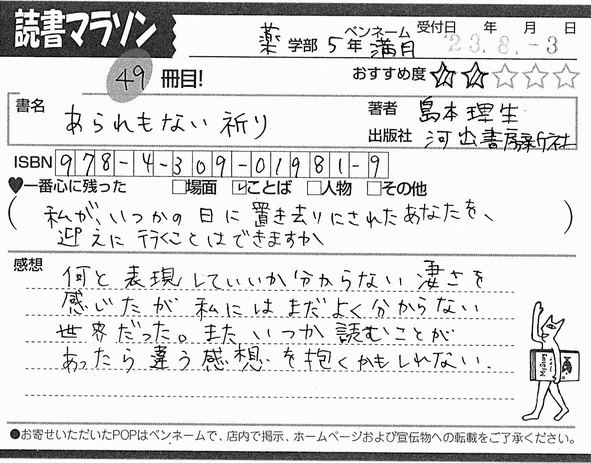 読書マラソン
薬学部 5年 ペンネーム 満月 受付日 年 月 日
'23.8.-3
49冊目!
おすすめ度 ★★☆☆☆
書名 あられもない祈り
著者 島本理生
出版社 河出書房新社
ISBN 978-4-309-01981-9
♥一番心に残った □場面 ☑ことば □人物 □その他
(私が、いつかの日に置き去りにされたあなたを、
迎えに行くことはできますか)
感想 何と表現していいか分からない凄さを
感じたが私にはまだよく分からない
世界だった。またいつか読むことが
あったら違う感想を抱くかもしれない.
●お寄せいただいたPOPはペンネームで、店内で掲示、ホームページおよび宣伝物への転載をご了承ください。